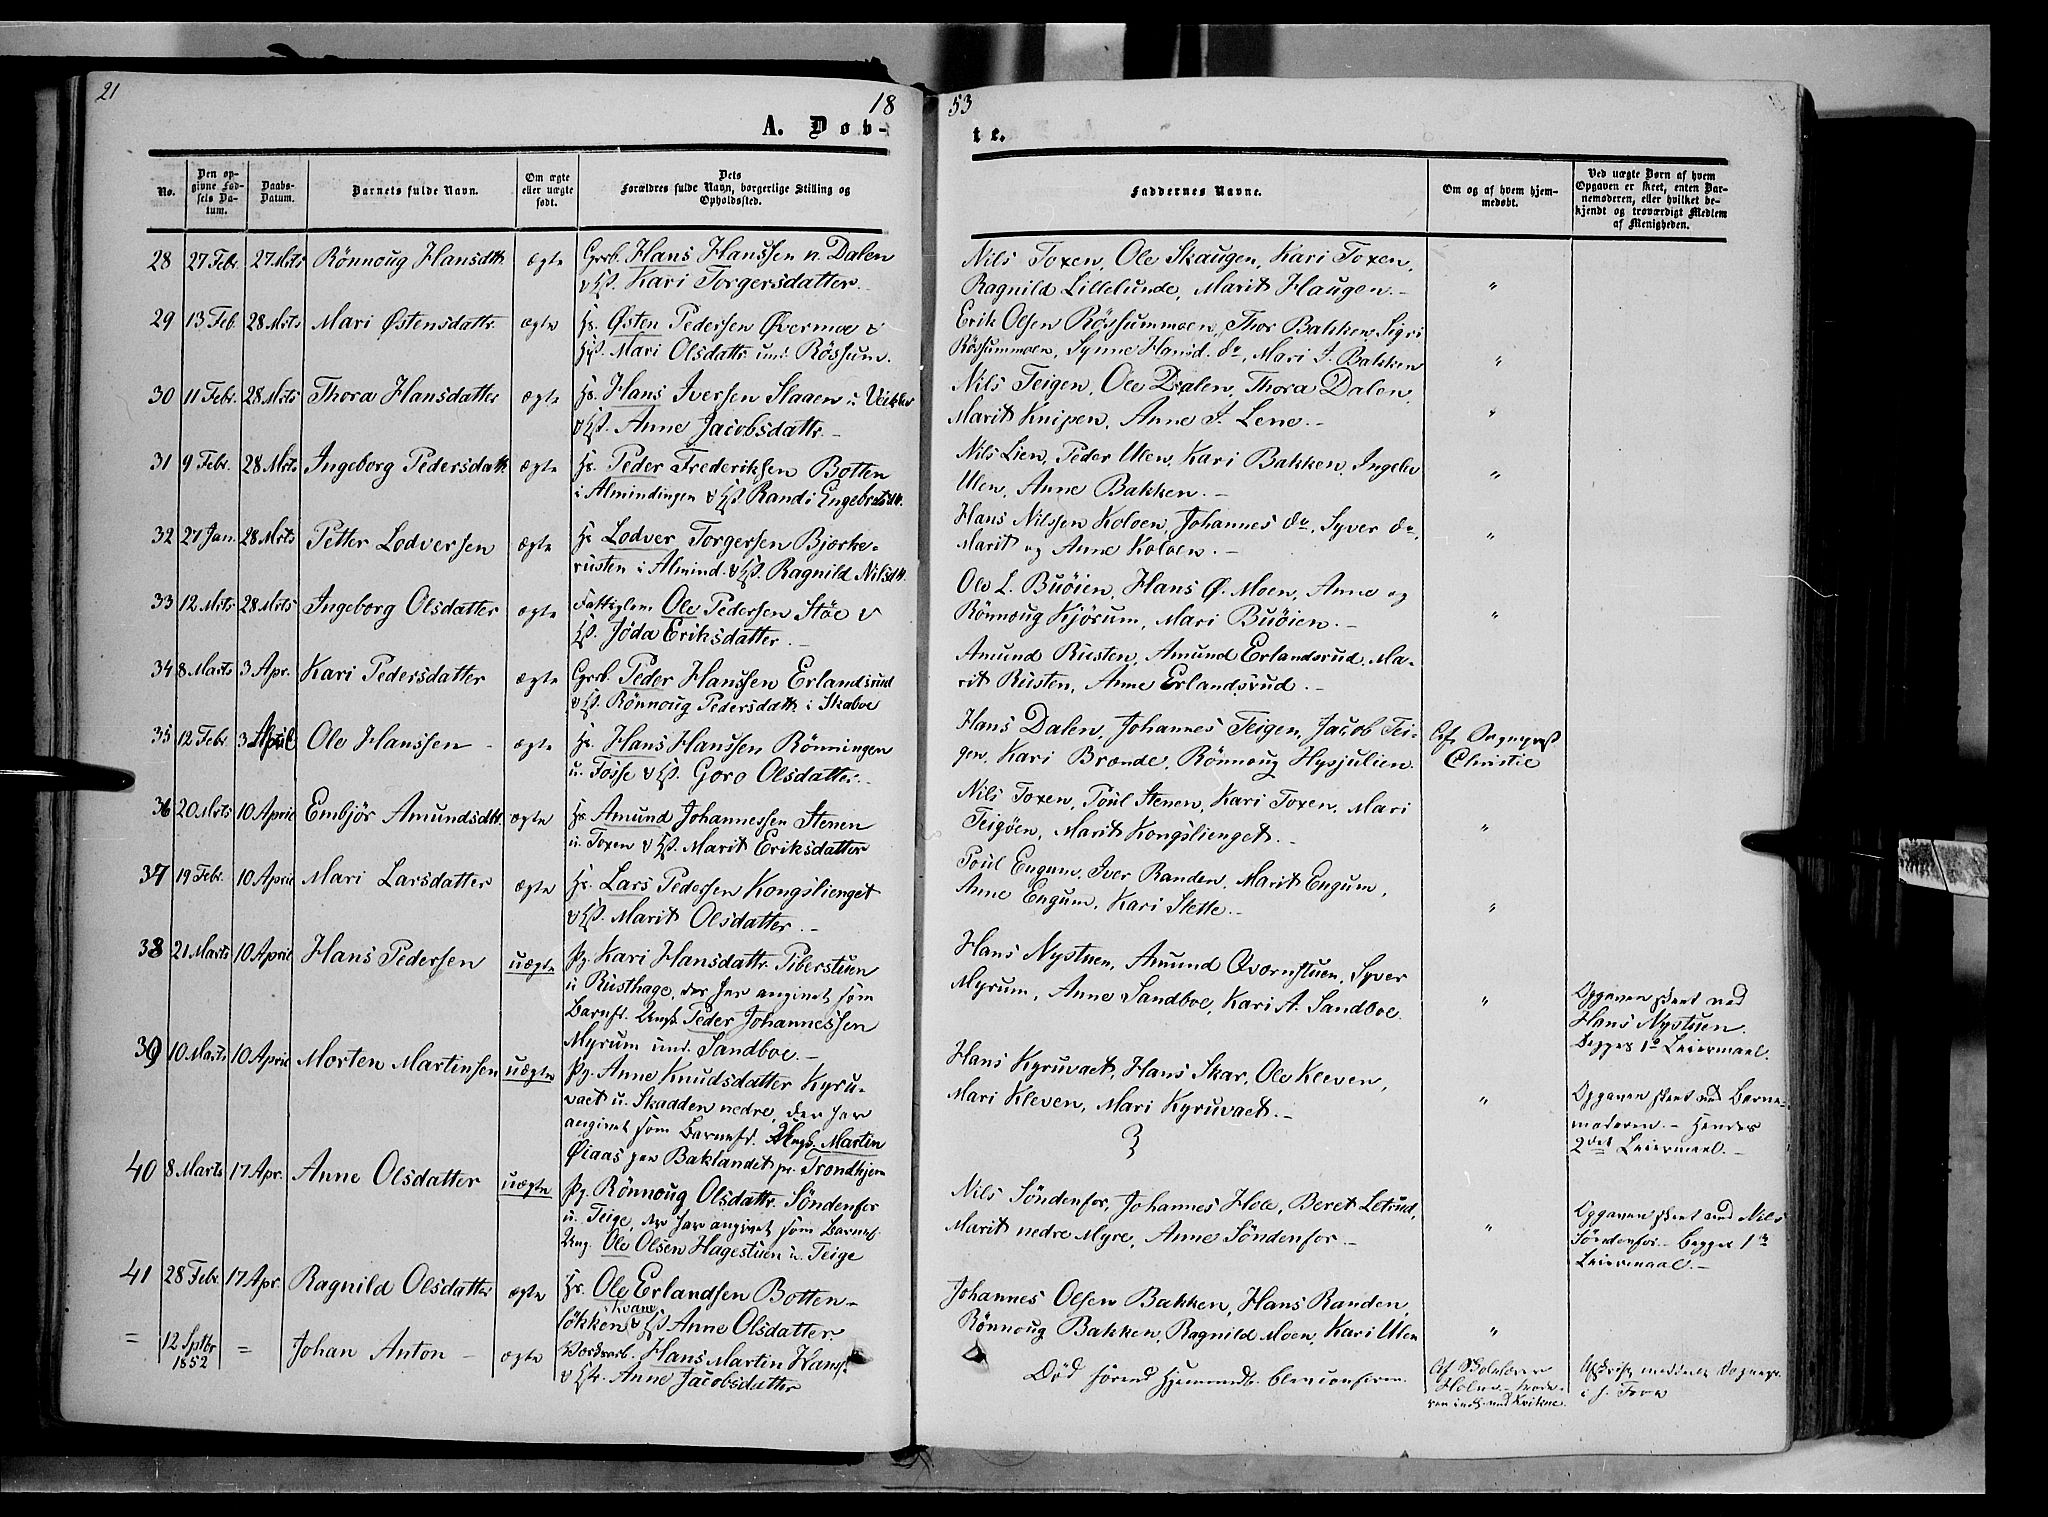 21
18
53
A. Døb-
te.
No.
Den op-
givne Fød-
sels Da-
tum.
Daabs-
Datum.
Barnets fulde Navn.
Om ægte
eller uægte
født.
Dets
Forældres fulde Navn, borgerlige Stilling og
Opholdssted.
Faddernes Navne.
Om og af hvem hjem-
medøbt.
Ved uægte Børn af hvem
Opgaven er skeet, enten Bar-
nemoderen, eller hvilket be-
kjendt og troværdigt Medlem
af Menigheden.
28 27 Febr. 27 Mrts Rönnoug Hansdtr. ægte Grb. Hans Hanssen n. Dalen
Kari Torgersdatter.
Nils Toxen, Ole Skaugen, Kari Toxen,
Ragnild Lillelunde, Marit Haugen. - "
29 13 Feb. 28 Mrts Mari Østensdattr. ægte Hs. Østen Pedersen Øvermoe &
Mari Olsdattr. und. Røssum.
Erik Olsen Røssummoen, Thor Bakken, Sigri
Røssummoen, Synne Hansd. do, Mari J. Bakken "
30 11 Febr. 28 Mrts Thora Hansdatter ægte Hs. Hans Iversen Slaaen u.
Anne Jacobsdattr. -
Nils Teigen, Ole Dalen, Thora Dalen,
Marit Knipen, Anne J. Lene. - "
31 9 Febr. 28 Mrts Ingeborg Pedersdattr. ægte Hs. Peder Frederiksen Botten
i Almindingen Randi Engebretsdtr.
Nils Lien, Peder Ulen, Kari Bakken, Ingelev
Ulen, Anne Bakken. - "
32 27 Jan. 28 Mrts Petter Lodversen ægte Hs Lodver Torgersen Bjørke-
rusten i Almind. Ragnild Nilsdtr.
Hans Nilssen Koloen, Johannes do, Syver do,
Marit og Anne Koloen. - "
33 12 Mrts 28 Mrts Ingeborg Olsdatter ægte Fattiglem Ole Pedersen Støe
Jøda Eriksdatter. -
Ole L. Buöien, Hans Ø. Moen, Anne og
Rönnoug Kjörum, Mari Buöien. - "
34 8 Marts 3 Apr. Kari Pedersdatter ægte Grb. Peder Hanssen Erlandsrud
Rönnoug Pedersdattr. i Skaboe
Amund Rusten, Amund Erlandsrud, Ma-
rit Rusten, Anne Erlandsrud. -
35 12 Febr. 3 April Ole Hanssen - ægte Hs. Hans Hanssen Rönningen
u. Fosse Goro Olsdatter. -
Hans Dalen, Johannes Teigen, Jacob Tei-
gen, Kari Brænde, Rönnoug Hysjulien.
Christie
36 20 Mrts 10 April Embjör Amundsdtr. ægte Hs. Amund Johannessen Stenen
u. Toxen Marit Eriksdatter
Nils Toxen, Poul Stenen, Kari Toxen, Mari
Teigöen, Marit Kongslienget. - "
37 19 Febr. 10 April Mari Larsdatter ægte Hs. Lars Pedersen Kongslienget
Marit Olsdatter. -
Poul Engum, Iver Randen, Marit Engum,
Anne Engum, Kari Slette. - "
38 21 Marts 10 April Hans Pedersen uægte Pg. Kari Hansdattr. Piberstuen
u Rusthage, der har angivet som
Barnef. Ungk. Peder Johannessen
Myrum und. Sandboe. -
Hans Nystuen, Amund Qvernstuen, Syver
Myrum, Anne Sandboe, Kari A. Sandboe. "
Opgaven skeet ved
Hans Nystuen.
Begges 1ste Leiermaal.
39 10 Marts 10 April Morten Martinsen uægte Pg. Anne Knudsdatter Kyru-
vaet u. Skadden nedre, der har
angivet som Barnefr. Ungk. Martin
Øiaas paa Baklandet pr. Trondhjem
Hans Kyruvaet, Hans Skar, Ole Kleven,
Mari Kleven, Mari Kyruvaet. - "
Opgaven skeet ved Barne-
moderen. - Hendes
2det Leiermaal. -
40 8 Marts 17 Apr. Anne Olsdatter uægte Pg. Rönnoug Olsdattr. Söndenfor
u. Teige, der har angivet som Barnef.
Ung. Ole Olsen Hagestuen u. Teige
Nils Söndenfor, Johannes Hole, Beret Letrud,
Marit nedre Myre, Anne Söndenfor - "
Opgaven skeet ved Nils
Söndenfor - begges 1ste
Leiermaal. -
41 28 Febr. 17 Apr. Ragnild Olsdatter ægte Hs. Ole Erlandsen Botten-
løkken i Kvane Anne Olsdatter.
Johannes Olsen Bakken, Hans Randen,
Rönnoug Bakken, Ragnild Moen, Kari Ulen "
= 12 Sptbr 1852 = Johan Anton - ægte Hans Martin Hans
Anne Jacobsdatter
Død förend Hjemmedb.
Af Skolelærer
Holm
i f. Fron